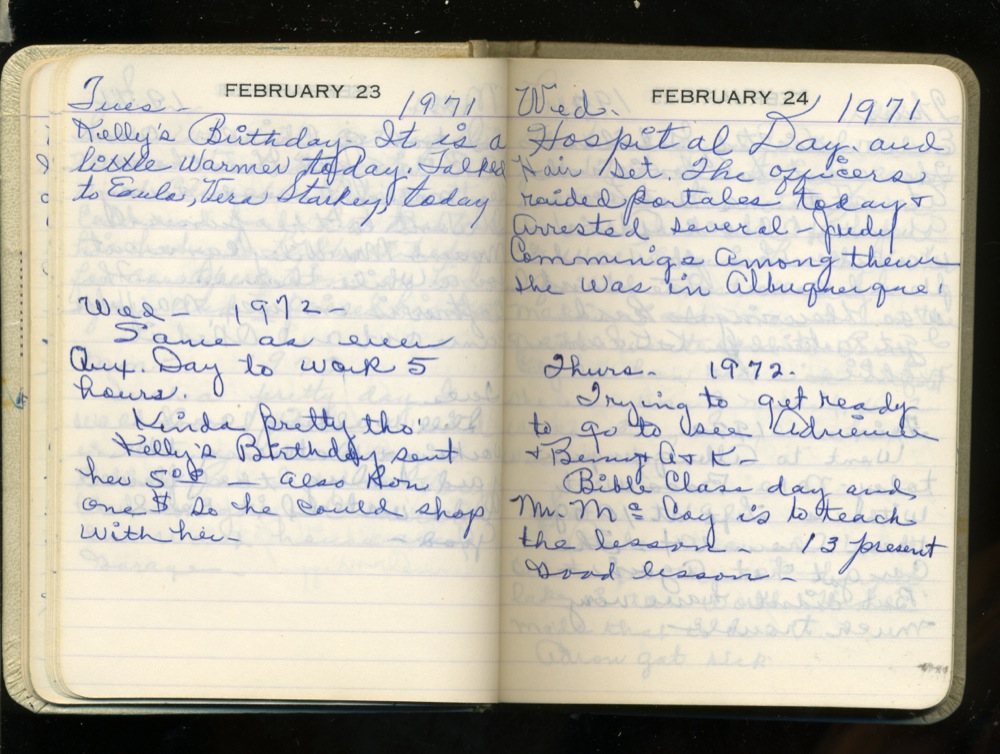 FEBRUARY 23
Tues - 1971
Kelly's Birthday - It is a
little warmer today. Talked
to Eula, Vera Starkey, today
Wed - 1972 -
Same as ever
Aux. Day to work 5
hours.
Kinda pretty tho'
Kelly's Birthday sent
her 5.00 - also Ron
one $ so he could shop
with her -
FEBRUARY 24
Wed. 1971
Hospital Day. and
Hair Set. The officers
raided Portales today +
Arrested several - Judy
Commings among them
she was in Albuquerque!
Thurs. 1972.
Trying to get ready
to go to see Adrienne
+ Benny A + K -
Bible Class day and
Mr. Mc Coy is to teach
the lesson - 13 present
Good lesson -